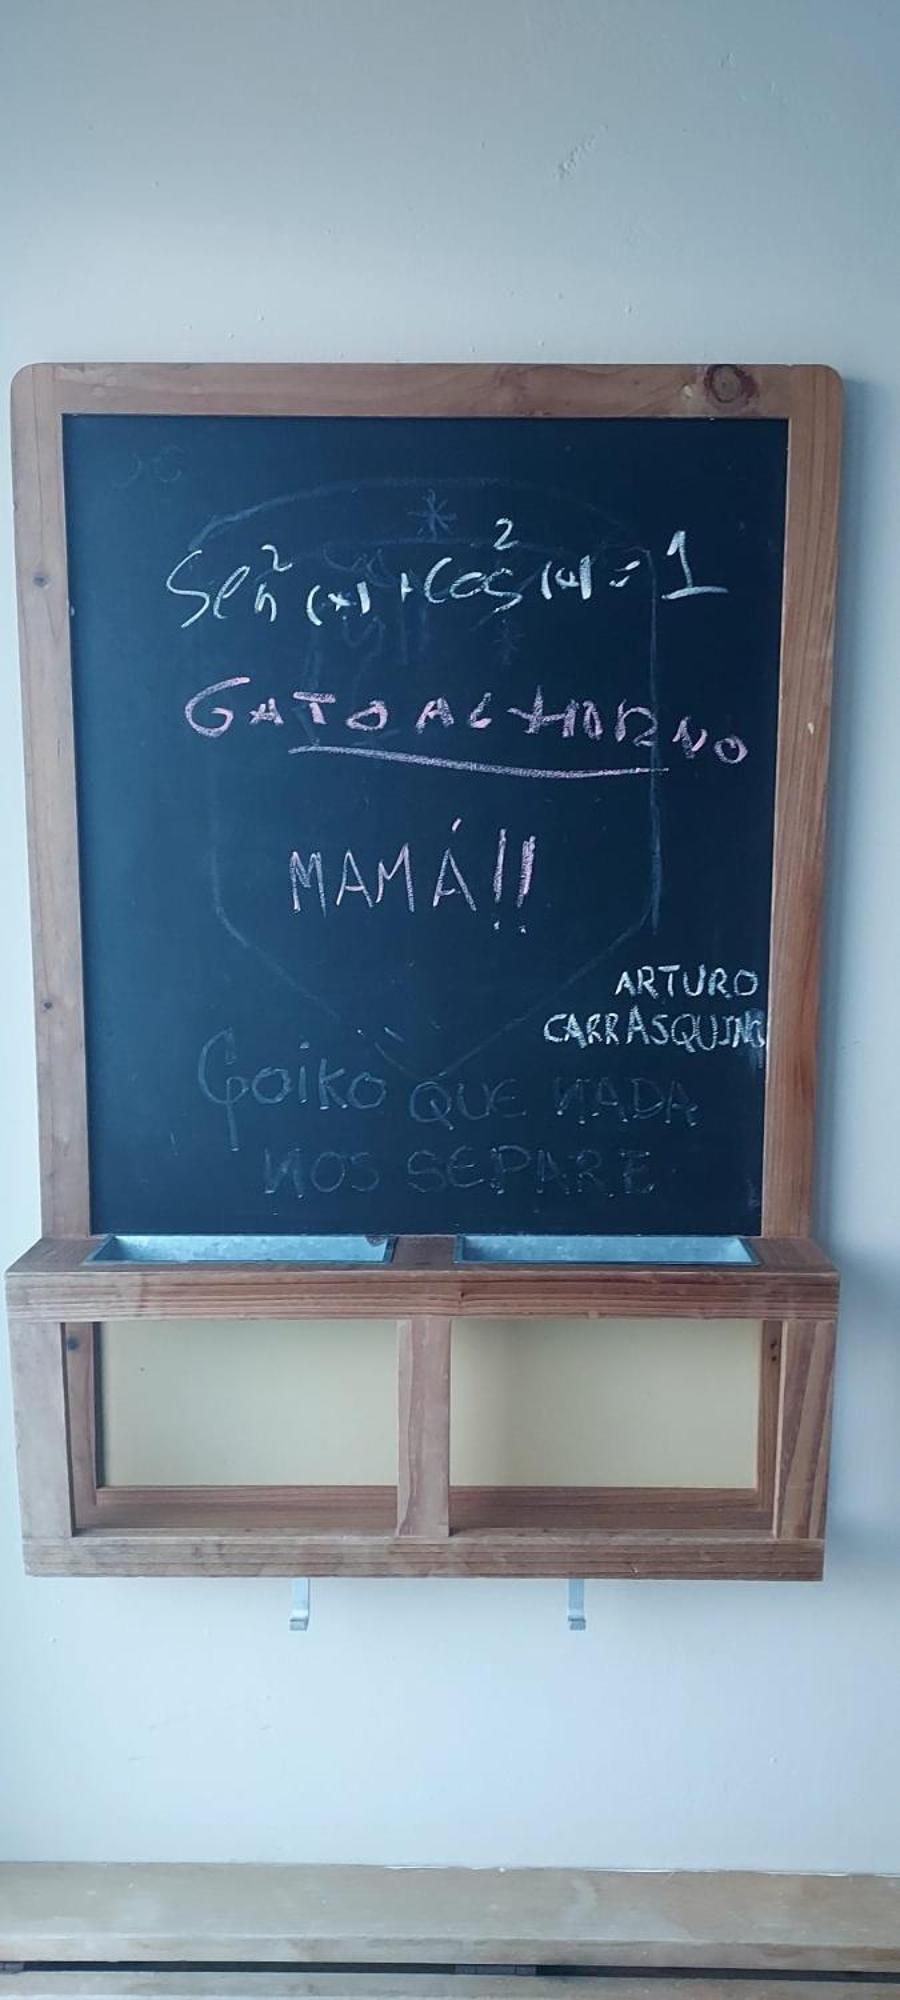 Sen²(x)+Cos²(x)=1
GATO AL HORNO
MAMÁ!!
ARTURO
CARRASQUING
Goiko QUE NADA
NOS SEPARE